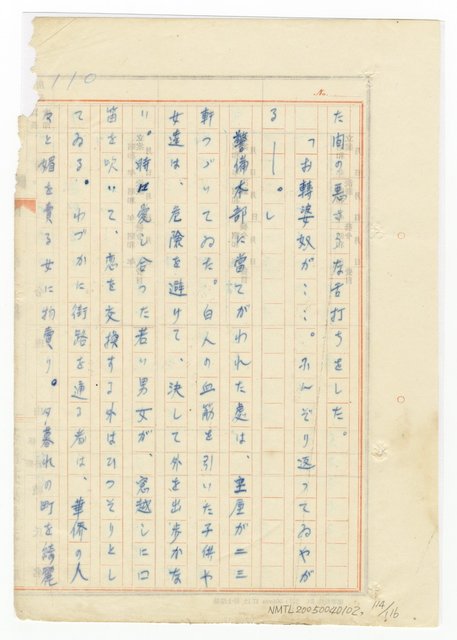 110
No.
た間の悪さうな舌打ちをした。
「お轉婆奴が……。ふんぞり返つてゐやが
る──。」
警備本部に當てがわれた處は、空屋が二三
軒つづいてゐた。白人の血筋を引いた子供や
女達は、危險を避けて、決して外を出歩かな
い。時に愛し合つた若い男女が、窓越しに口
笛を吹いて、恋を交換する外はひつそりとし
てゐる。わづかに街路を通る者は、華僑の人
々と媚を賣る女に物賣り。夕暮れの町を綺麗
NMTL20050040102, 114/116